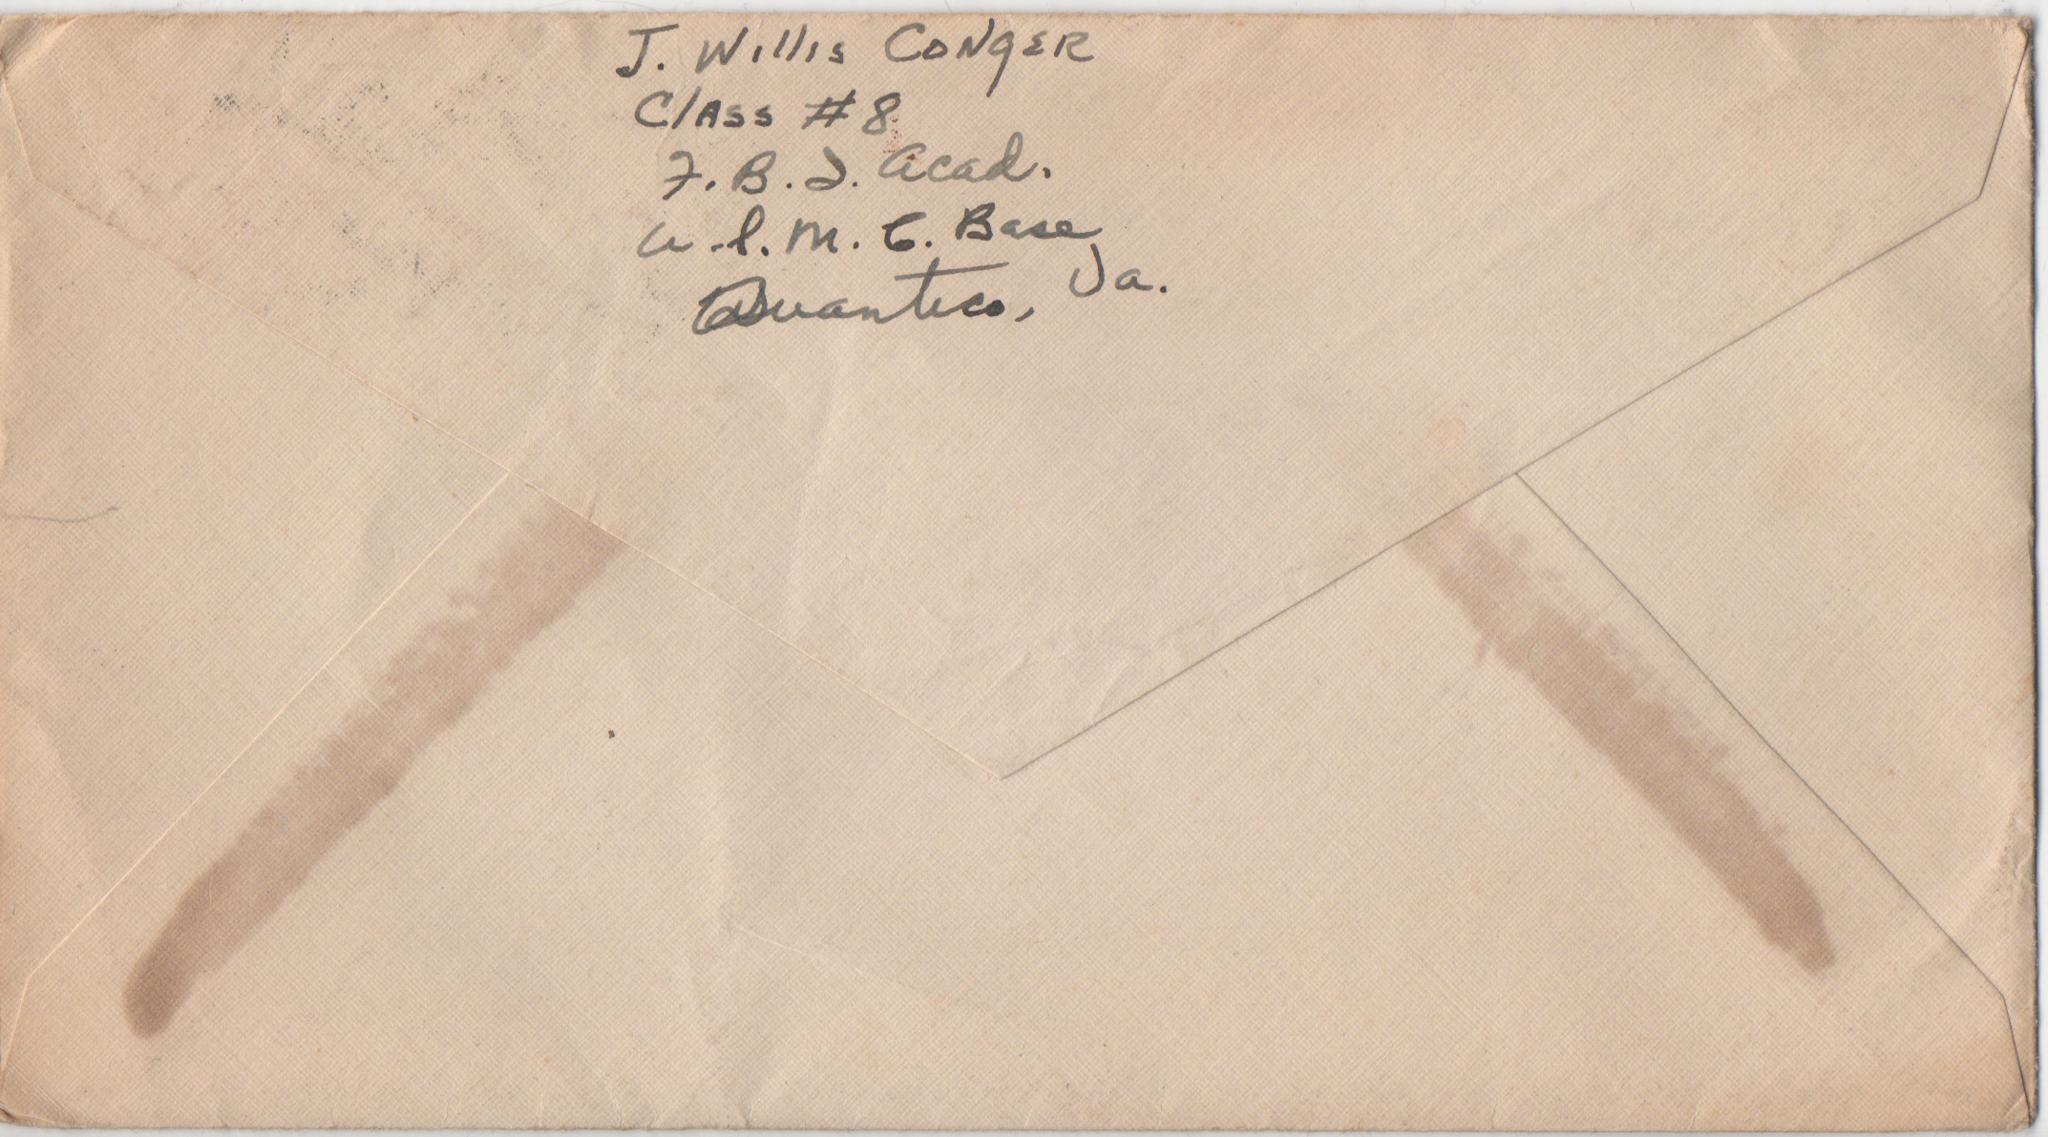 J. Willis Conger
Class #8
F. B. I. Acad.
U. S. M. C. Base
Quantico, Va.